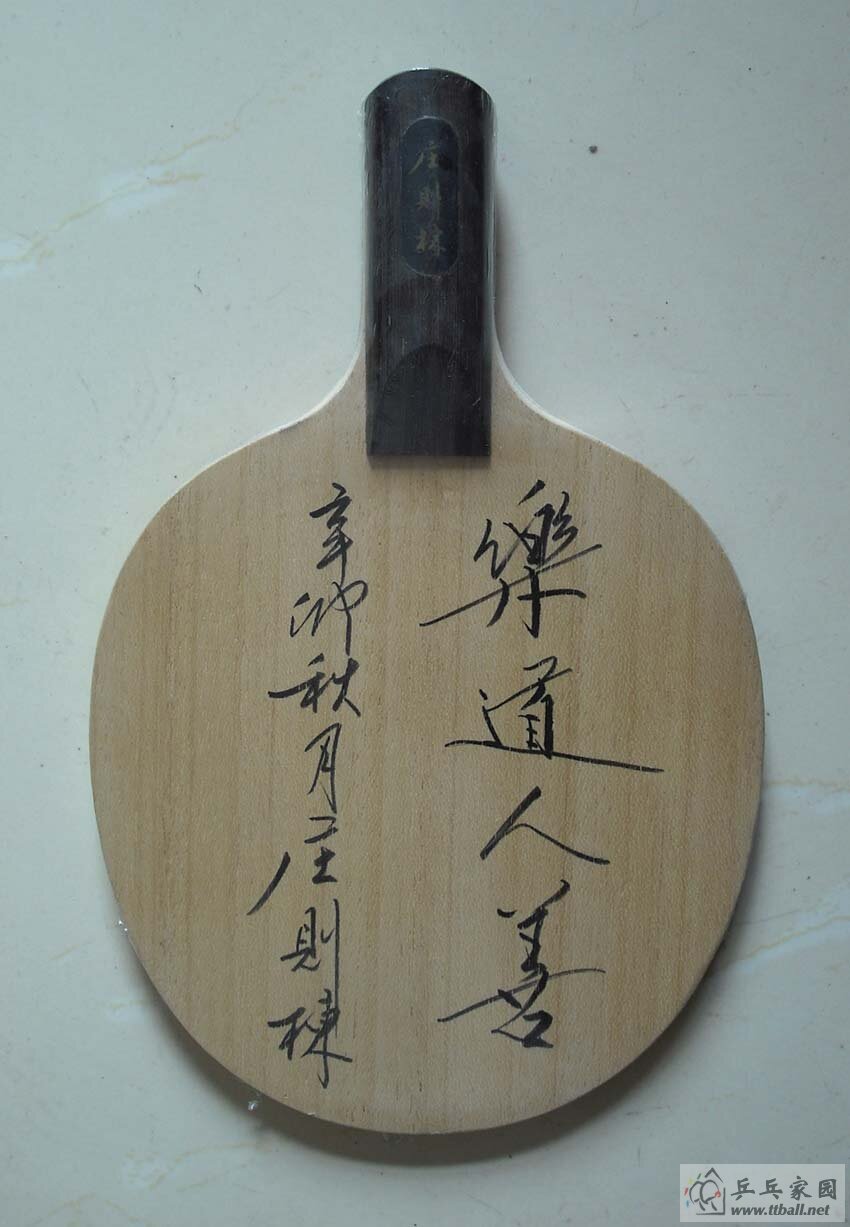 庄則棟
樂道人善
辛卯秋月庄則棟
乒乓家园
www.ttball.net